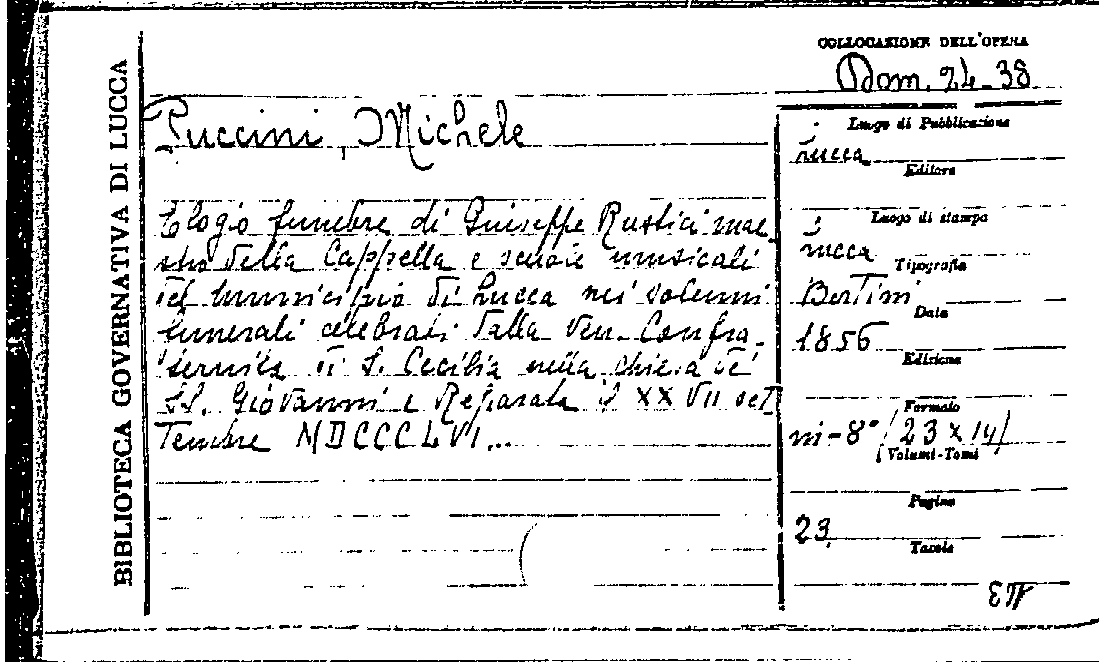 BIBLIOTECA GOVERNATIVA DI LUCCA
COLLOCAZIONE DELL'OPERA
Dom. 24-38
Puccini, Michele
Elogio funebre di Giuseppe Rustici mae-
stro della Cappella e scuole musicali
del Municipio di Lucca nei solenni
funerali celebrati dalla Ven. Confra-
ternita di S. Cecilia nella chiesa dei
SS. Giovanni e Reparata il XXVII set
tembre MDCCCLVI...
Luogo di Pubblicazione
Lucca
Editore
Luogo di stampa
Lucca
Tipografia
Bertini
Data
1856
Edizione
Formato
in-8° (23 x 14)
Volumi-Tomi
Pagine
23
Tavole